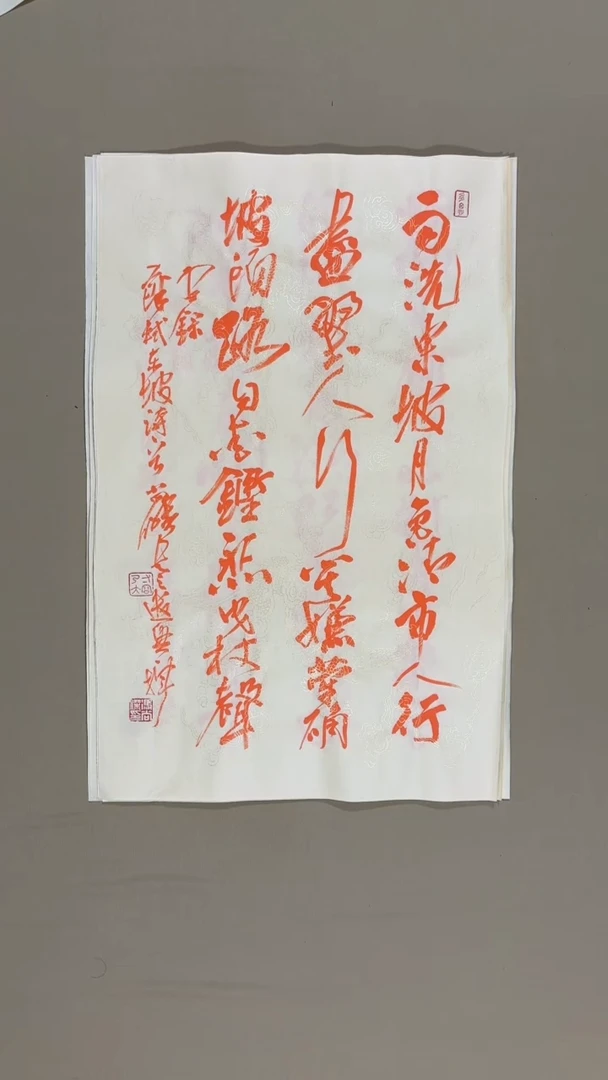 雨洗東坡月色清市人行
盡野人行莫嫌犖确
坡頭路自愛鏗然曳杖聲
右錄
蘇軾東坡詩